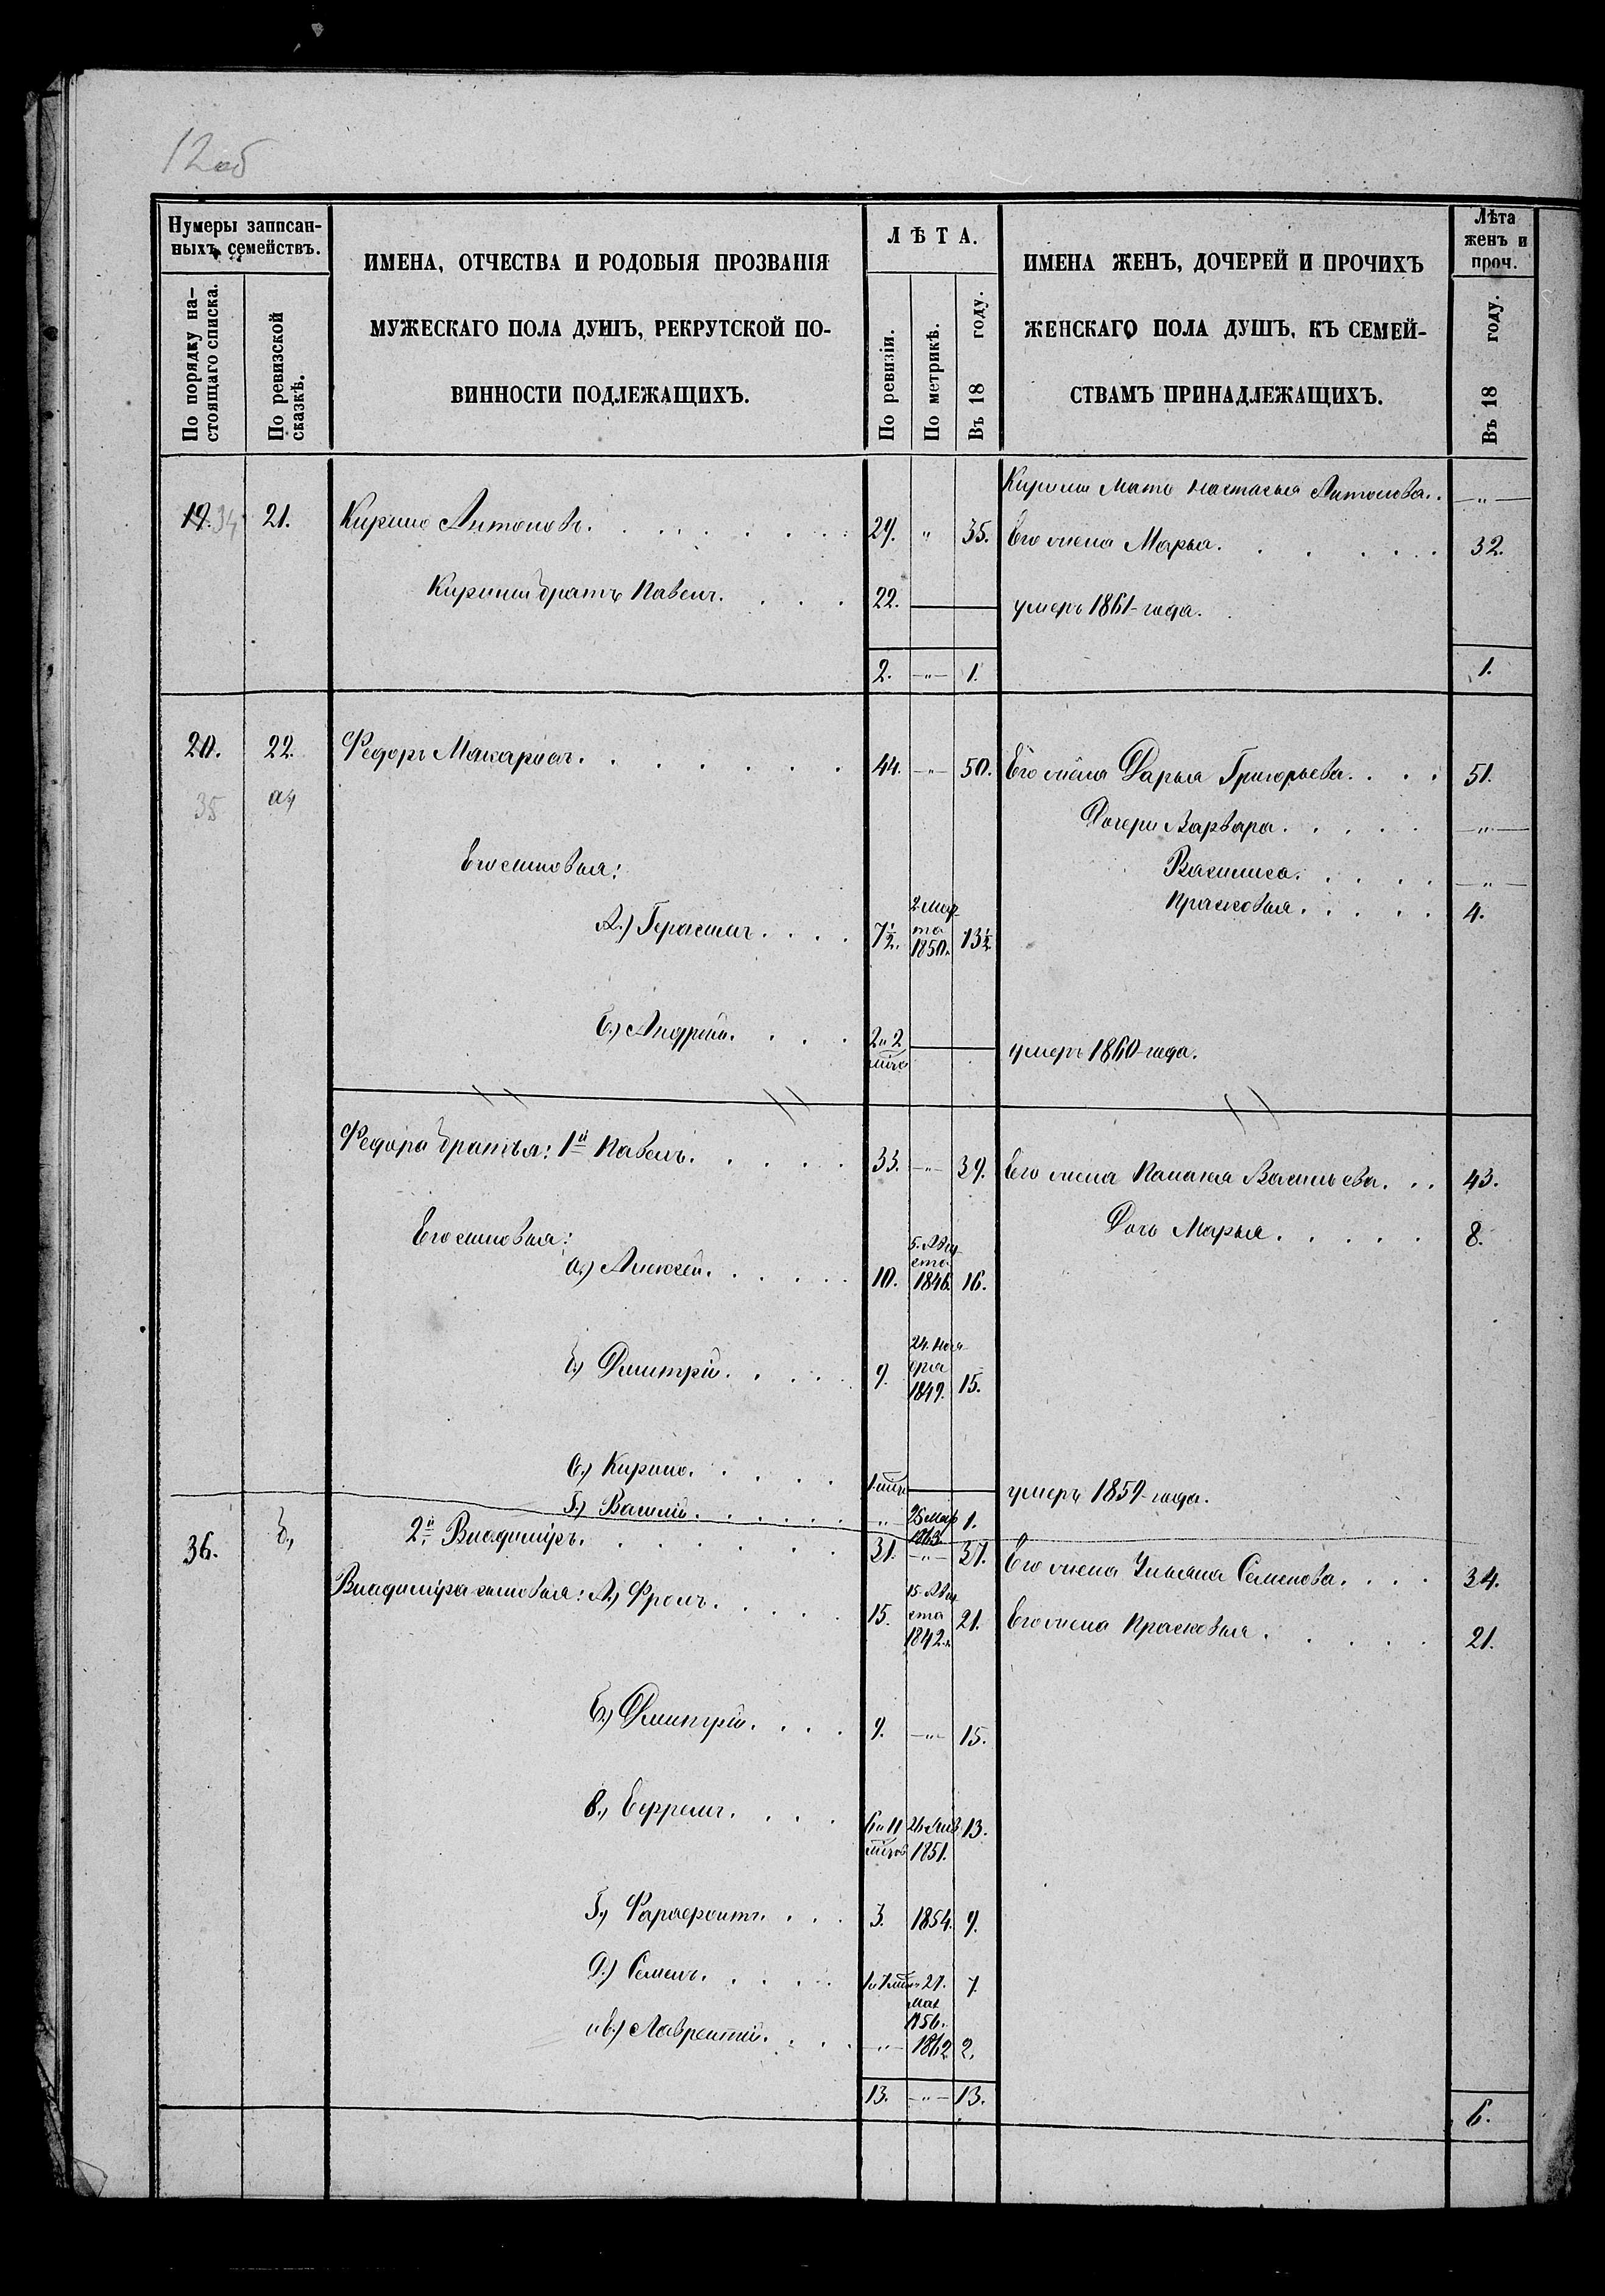 12об
Нумеры записан-
ныхъ семействъ.
По порядку на-
стоящаго списка.
По ревизской
сказкѣ.
ИМЕНА, ОТЧЕСТВА И РОДОВЫЯ ПРОЗВАНІЯ
МУЖЕСКАГО ПОЛА ДУШЪ, РЕКРУТСКОЙ ПО-
ВИННОСТИ ПОДЛЕЖАЩИХЪ.
ЛѢТА.
По ревизіи.
По метрикѣ.
Въ 18 году.
ИМЕНА ЖЕНЪ, ДОЧЕРЕЙ И ПРОЧИХЪ
ЖЕНСКАГО ПОЛА ДУШЪ, КЪ СЕМЕЙ-
СТВАМЪ ПРИНАДЛЕЖАЩИХЪ.
Лѣта
женъ и
проч.
Въ 18 году.
Кирила Мать Настасья Антонова. . —„—
19. 34 21. Кирило Антоновъ. 29. „ 35. Его жена Марья. 32.
Кирилы братъ Павелъ. 22. умеръ 1861-года.
2. —„— 1. 1.
20. 22. Федоръ Макаровъ. 44. —„— 50. Его жена Дарья Григорьева. 51.
35 а,
Дочери Варвара. —„—
Его сыновья:
Василиса. —„—
Прасковья. 4.
А.) Герасимъ. 7½. 2. Мар-
та
1850. 13½
Б.) Андрей. 2 и 2
мѣс. умеръ 1860-года.
Федора братья: 1й Павелъ. 33. —„— 39. Его жена Васильева. 43.
Дочь Марья. 8.
Его сыновья:
а.) Алексѣй. 10. 5. Авгу
ста
1846. 16.
б.) Дмитрій. 9. 24. Ноя
бря
1849. 15.
в.) Кирило. 1 мѣс. умеръ 1859-года.
г.) Василій. „ 25 Мар
1863. 1.
36. б., 2й Владиміръ. 31. —„— 37. Его жена Ульяна Семенова. 34.
Владиміра сыновья: А.) Фролъ. 15. 15. Авгу
ста
1842. 21. Его жена Прасковья. 21.
Б.) Дмитрій. 9. —„— 15.
В.) Ефремъ. 6 и 11
мѣсъ 26 Янв.
1851. 13.
Г.) 3. 1854. 9.
Д.) Семенъ. 27.
Мая
1856. 7.
и е.) Лаврентій. —„— 1862 2.
13. —„— 13. 6.